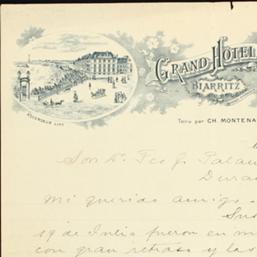 GRAND HOTEL
BIARRITZ
Tenu par CH. MONTENA
Sor. Dn. Fco G. Palau
Mi querido amigo.
19 de Julio fueron en m
con gran retraso y las